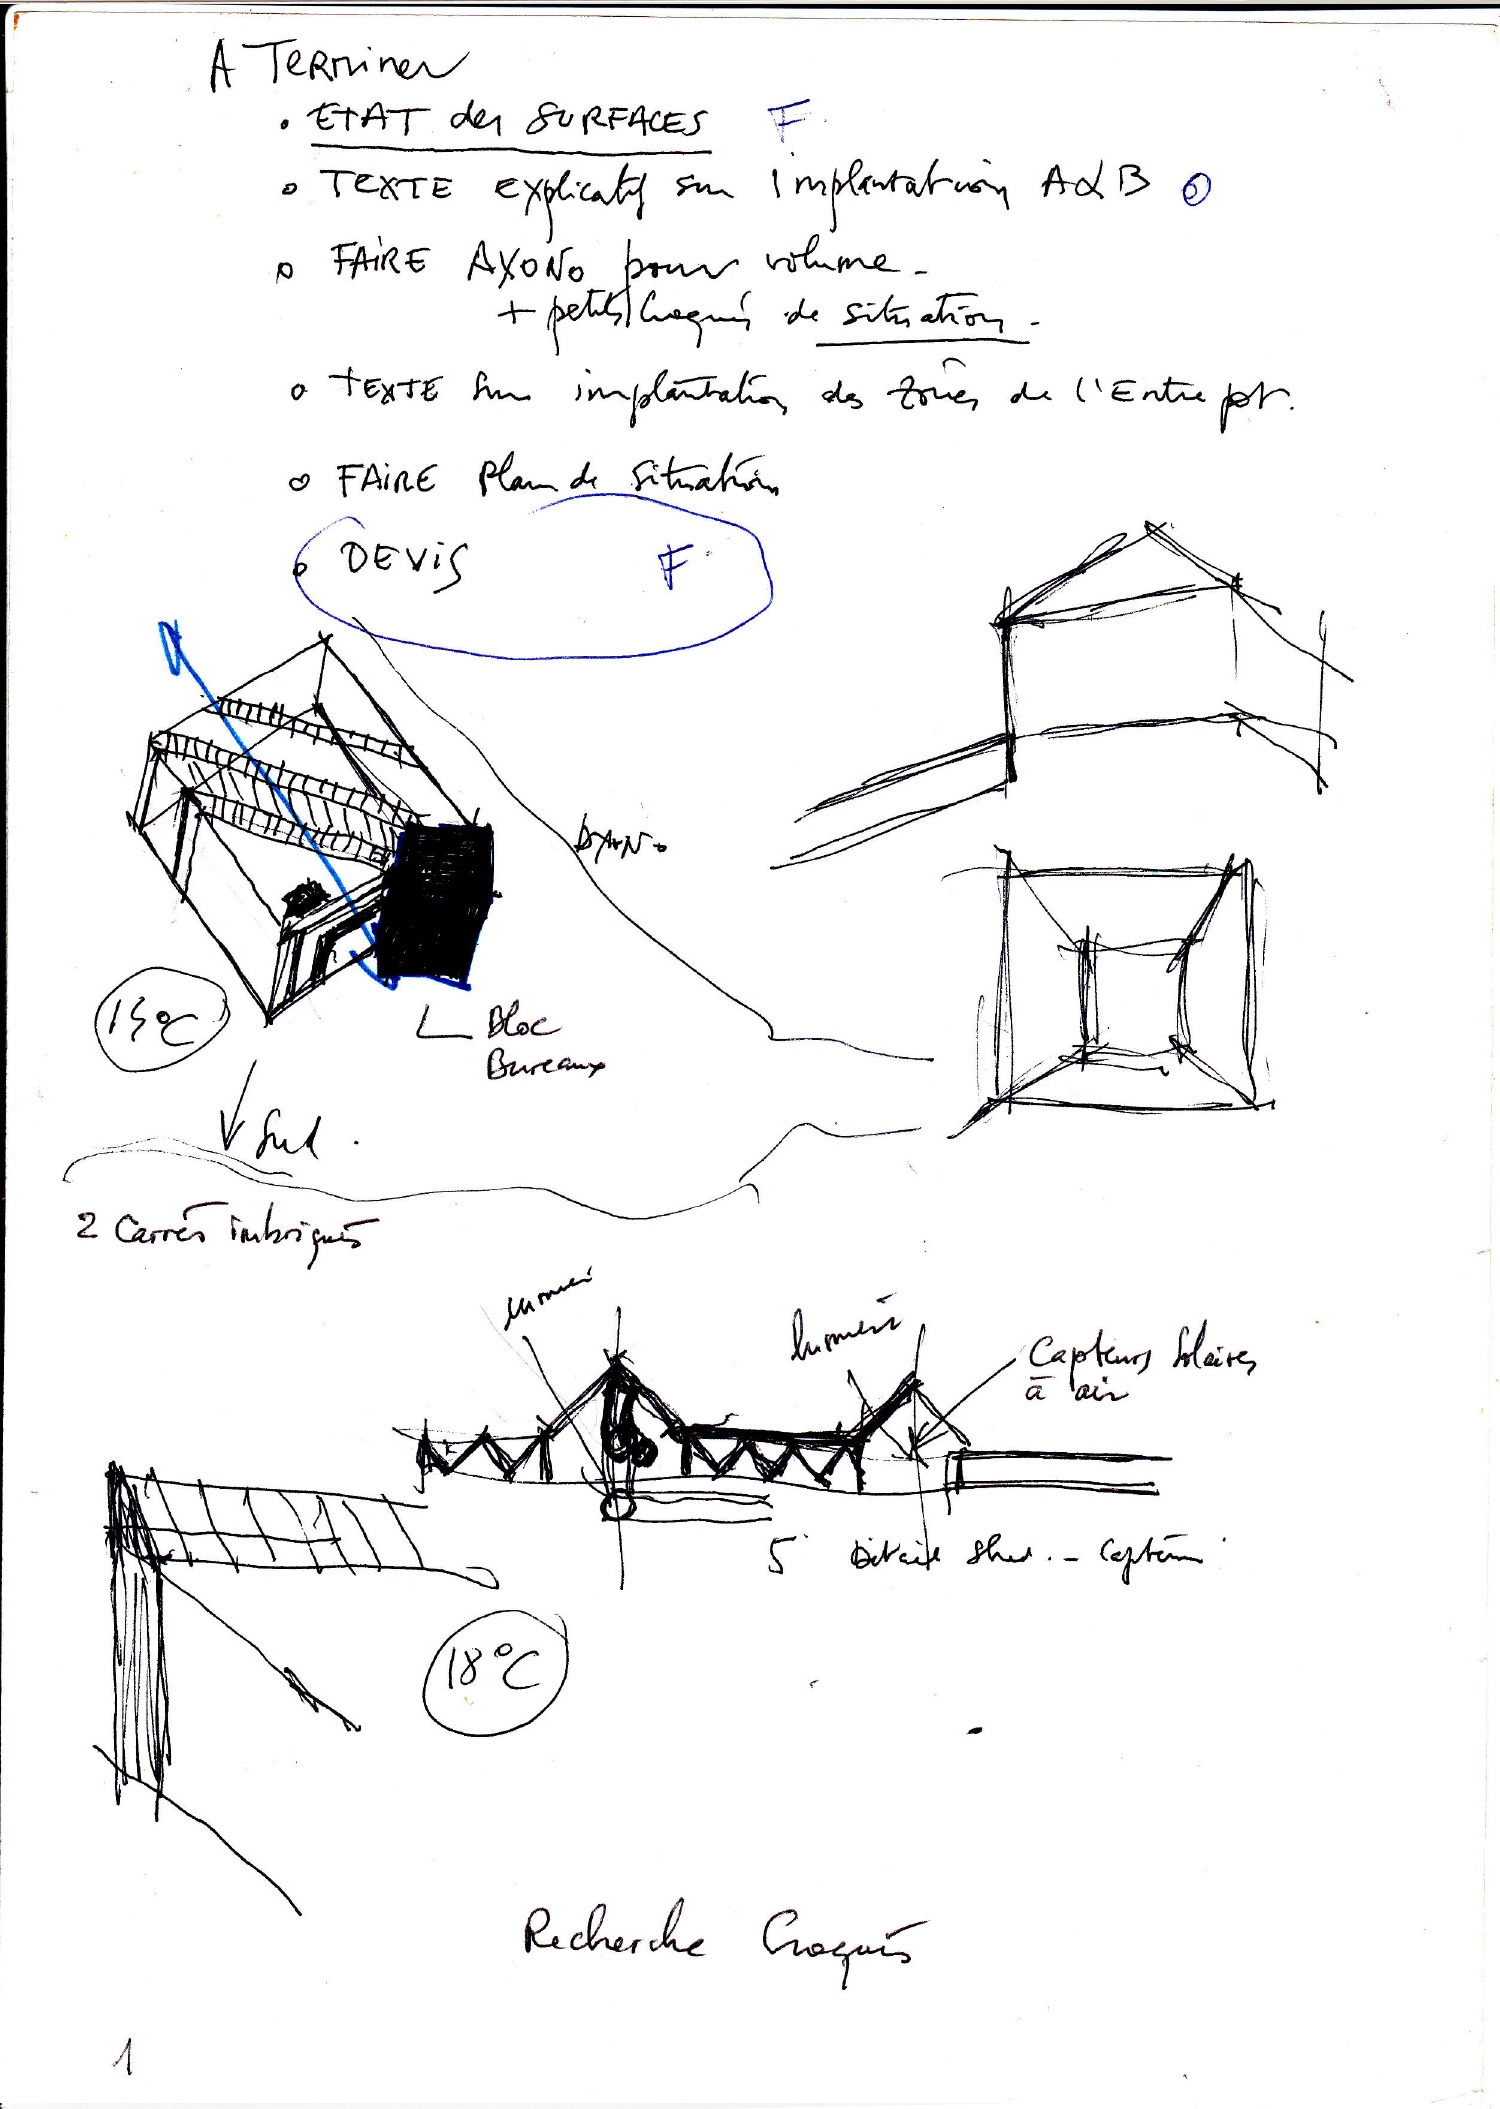 A Terminer
• ETAT des SURFACES F
o TEXTE explicatif sur implantation A & B
o FAIRE AXONO pour volume -
+ petits croquis de situation -
o TEXTE sur implantation des zônes de l'Entrepôt.
o FAIRE Plan de situation
o DEVIS F
AXONO
15°C
Bloc
Bureaux
Sud.
2 Carrés imbriqués
lumière
lumière
Capteurs Solaires
à air
5 Détail Shed. - Capteur
18°C
Recherche Croquis
1